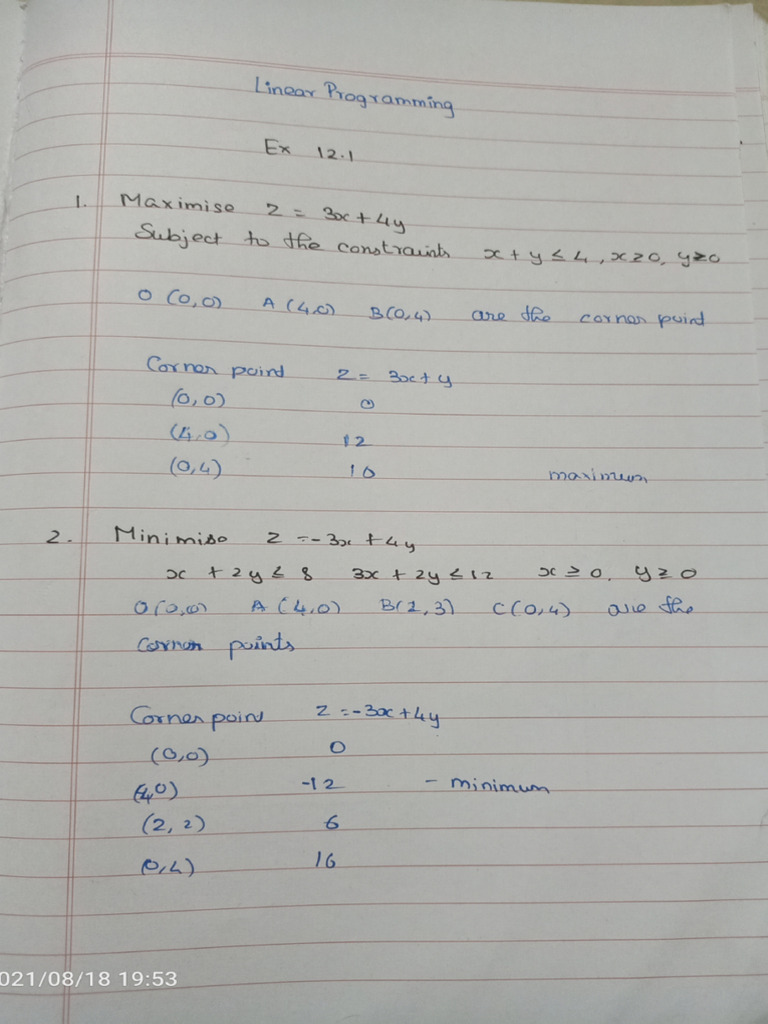 Linear Programming
Ex 12.1
1. Maximise Z = 3x + 4y
Subject to the constraints x + y ≤ 4, x ≥ 0, y ≥ 0
O (0,0) A (4,0) B(0,4) are the corner point
Corner point Z = 3x + y
(0,0) 0
(4,0) 12
(0,4) 16 maximum
2. Minimise Z = -3x + 4y
x + 2y ≤ 8 3x + 2y ≤ 12 x ≥ 0, y ≥ 0
O(0,0) A (4,0) B(2,3) C(0,4) are the
corner points
Corner point Z = -3x + 4y
(0,0) 0
(4,0) -12 - minimum
(2, 2) 6
(0,4) 16
021/08/18 19:53